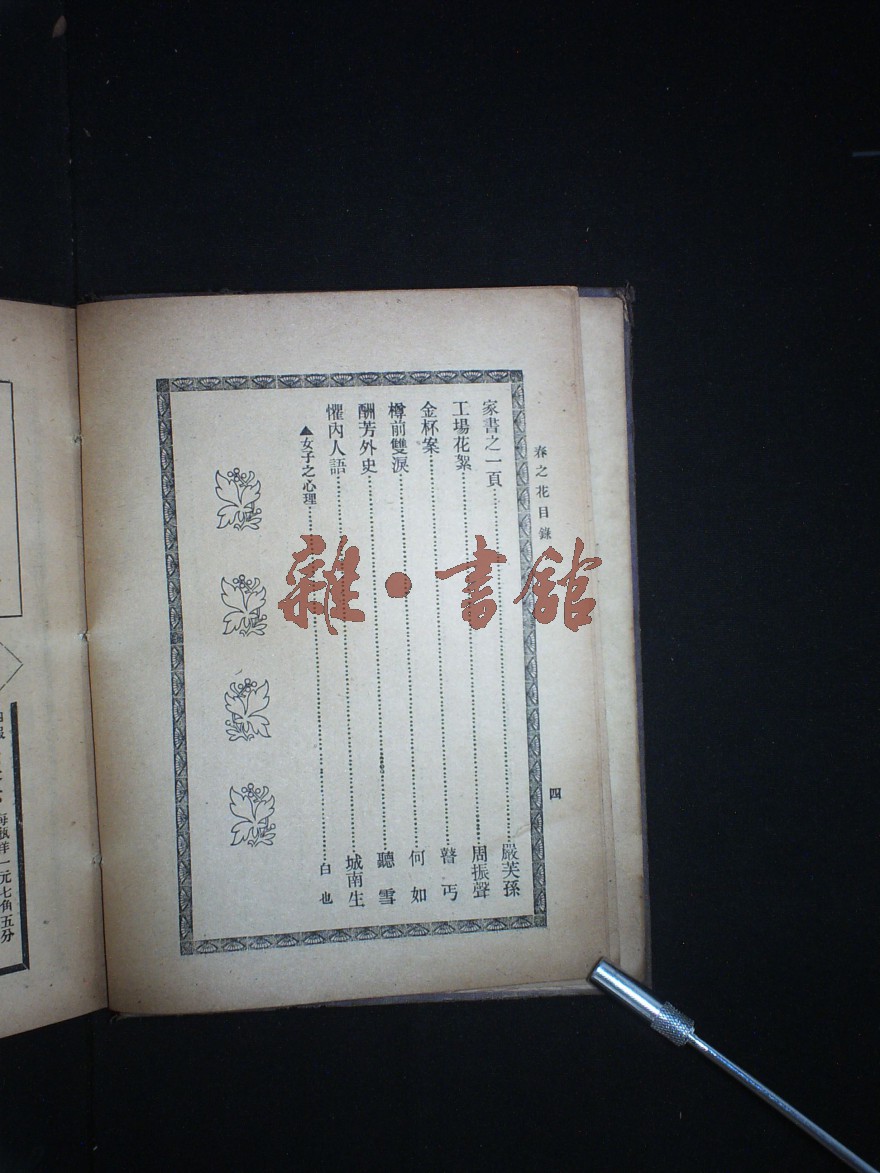 春之花目錄
四
家書之一頁 嚴芙孫
工場花絮 周振聲
金杯案 瞽丐
樽前雙淚 何如
酬芳外史 聽雪
懼內人語 城南生
▲女子之心理 白也
每瓶洋一元七角五分
雜·書館